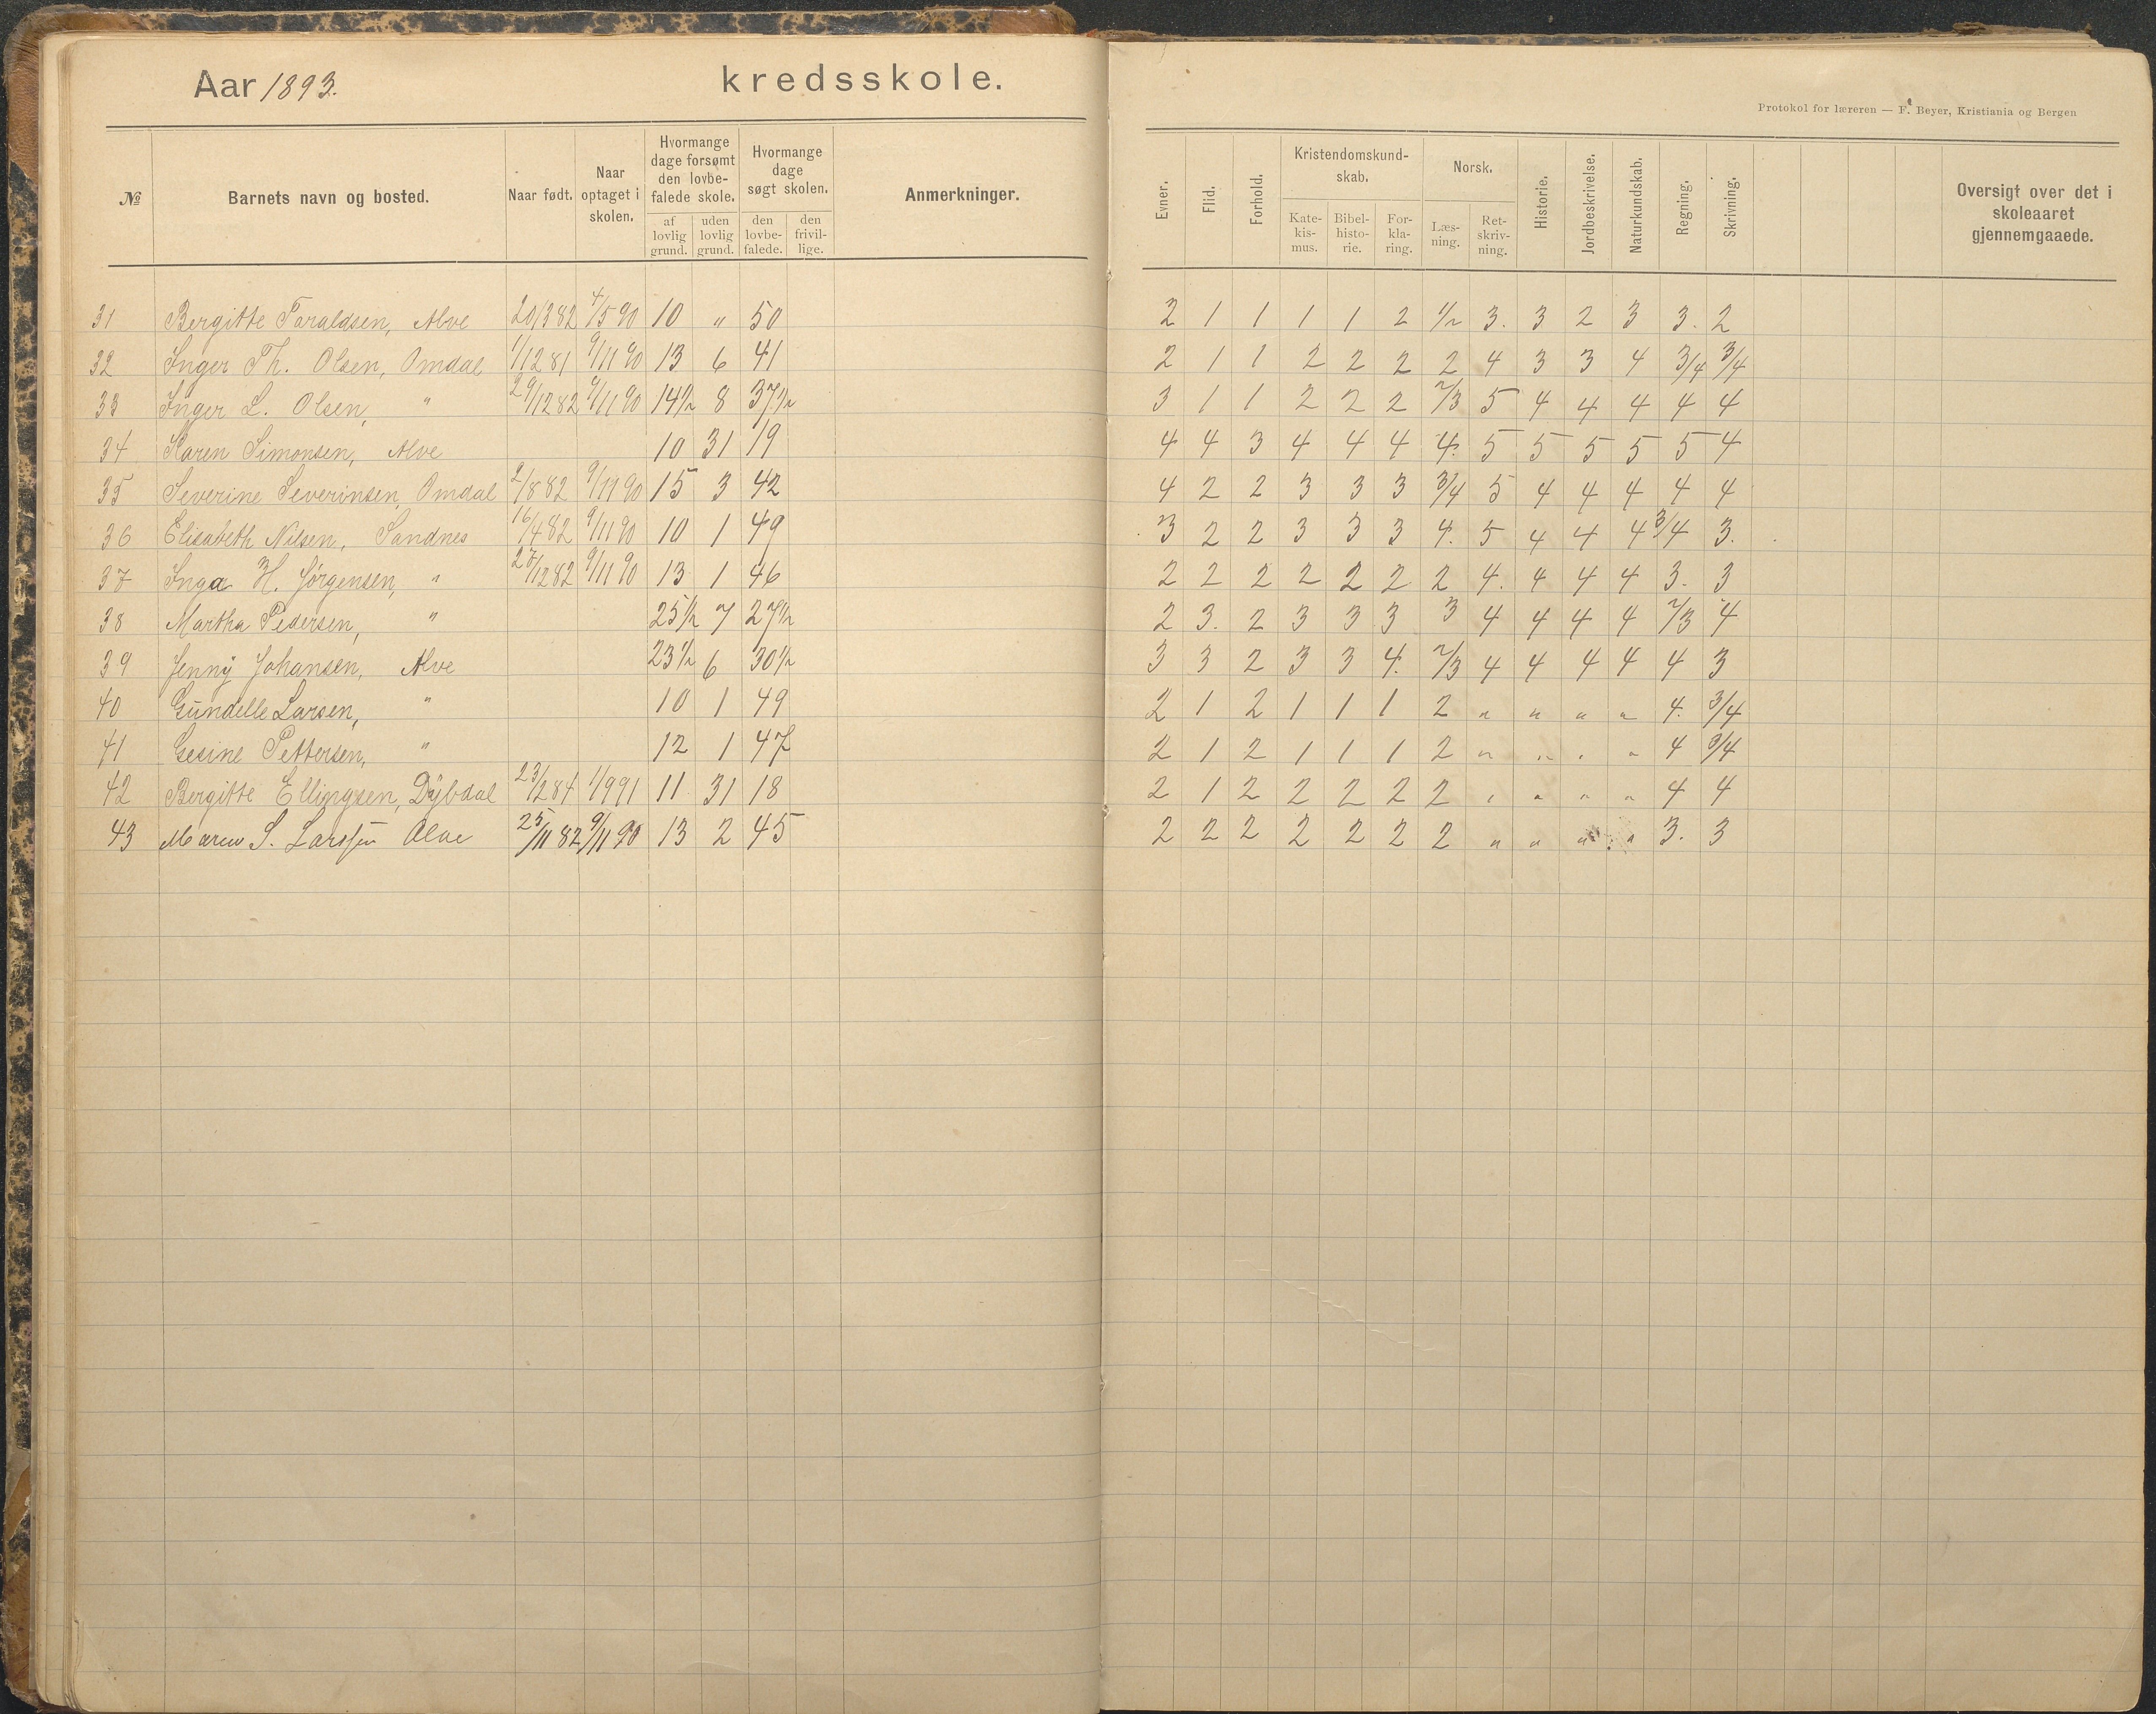 Aar 1893. kredsskole.
Protokol for læreren — F. Beyer, Kristiania og Bergen
№ Barnets navn og bosted. Naar født. Naar optaget i skolen. Hvormange dage forsømt den lovbefalede skole. af lovlig grund. uden lovlig grund. Hvormange dage søgt skolen. den lovbefalede. den frivillige. Anmerkninger. Evner. Flid. Forhold. Kristendomskundskab. Katekismus. Bibelhistorie. Forklaring. Norsk. Læsning. Retskrivning. Historie. Jordbeskrivelse. Naturkundskab. Regning. Skrivning. Oversigt over det i skoleaaret gjennemgaaede.
31 Bergitte Taraldsen, Alve 20/3 82 4/5 90 10 " 50 2 1 1 1 1 2 1/2 3. 3 2 3 3. 2
32 Inger Th. Olsen, Omdal 1/12 81 9/11 90 13 6 41 2 1 1 2 2 2 2 4 3 3 4 3/4 3/4
33 Inger L. Olsen, " 29/12 82 9/11 90 14½ 8 37½ 3 1 1 2 2 2 2/3 5 4 4 4 4 4
34 Karen Simonsen, Alve 10 31 19 4 4 3 4 4 4 4. 5 5 5 5 5 4
35 Severine Severinsen, Omdal 2/8 82 9/11 90 15 3 42 4 2 2 3 3 3 3/4 5 4 4 4 4 4
36 Elisabeth Nilsen, Sandnes 16/4 82 9/11 90 10 1 49 3 2 2 3 3 3 4. 5 4 4 4 3/4 3.
37 Inga H. Jørgensen, " 27/12 82 9/11 90 13 1 46 2 2 2 2 2 2 2 4. 4 4 4 3. 3
38 Martha Pedersen, " 25½ 7 27½ 2 3. 2 3 3 3 3 4 4 4 4 2/3 4
39 Jenny Johansen, Alve 23½ 6 30½ 3 3 2 3 3 4. 2/3 4 4 4 4 4 3
40 Gundelle Larsen, " 10 1 49 2 1 2 1 1 1 2 " " " " 4. 3/4
41 Gesine Pettersen, " 12 1 47 2 1 2 1 1 1 2 " " " " 4 3/4
42 Bergitte Ellingsen, Dybdal 23/2 84 1/9 91 11 31 18 2 1 2 2 2 2 2 " " " " 4 4
43 Maren S. Larssen Alve 25/11 82 9/11 90 13 2 45 2 2 2 2 2 2 2 " " " " 3. 3